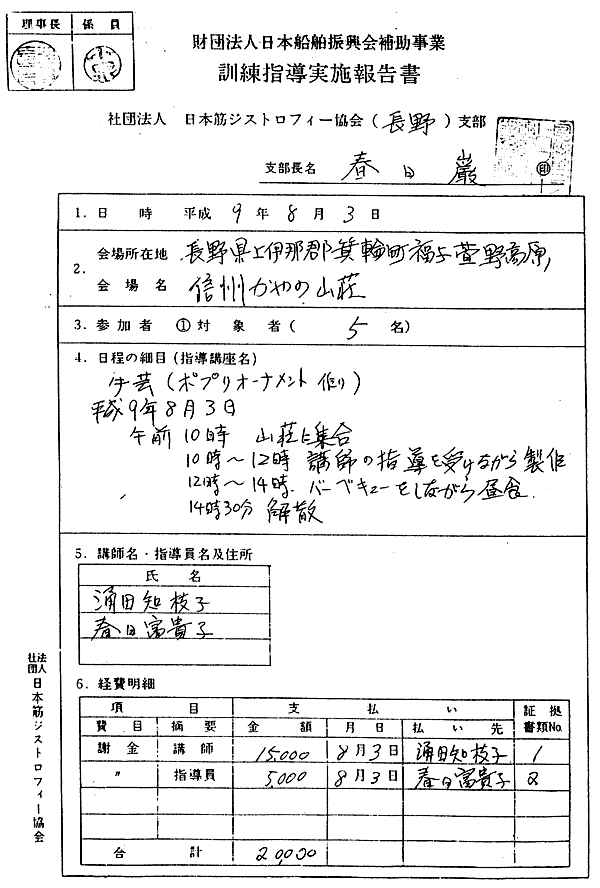 理事長 係員
財団法人日本船舶振興会補助事業
訓練指導実施報告書
社団法人 日本筋ジストロフィー協会(長野)支部
支部長名 春日 巌 印
1. 日 時 平成 9 年 8 月 3 日
2. 会場所在地 長野県上伊那郡箕輪町福与萱野高原
会場名 信州かやの山荘
3. 参加者 ①対象者( 5 名)
4. 日程の細目(指導講座名)
手芸(ポプリオーナメント作り)
平成9年8月3日
午前 10時 山荘に集合
10時~12時 講師の指導を受けながら製作
12時~14時. バーベキューをしながら昼食.
14時30分 解散
5. 講師名・指導員名及住所
氏 名
涌田知枝子
春日富貴子
6. 経費明細
項 目 支 払 い 証拠書類No.
費目 摘要 金額 月日 払い先
謝金 講師 15,000 8月3日 涌田知枝子 1
〃 指導員 5,000 8月3日 春日富貴子 2
合 計 20,000
社団法人 日本筋ジストロフィー協会